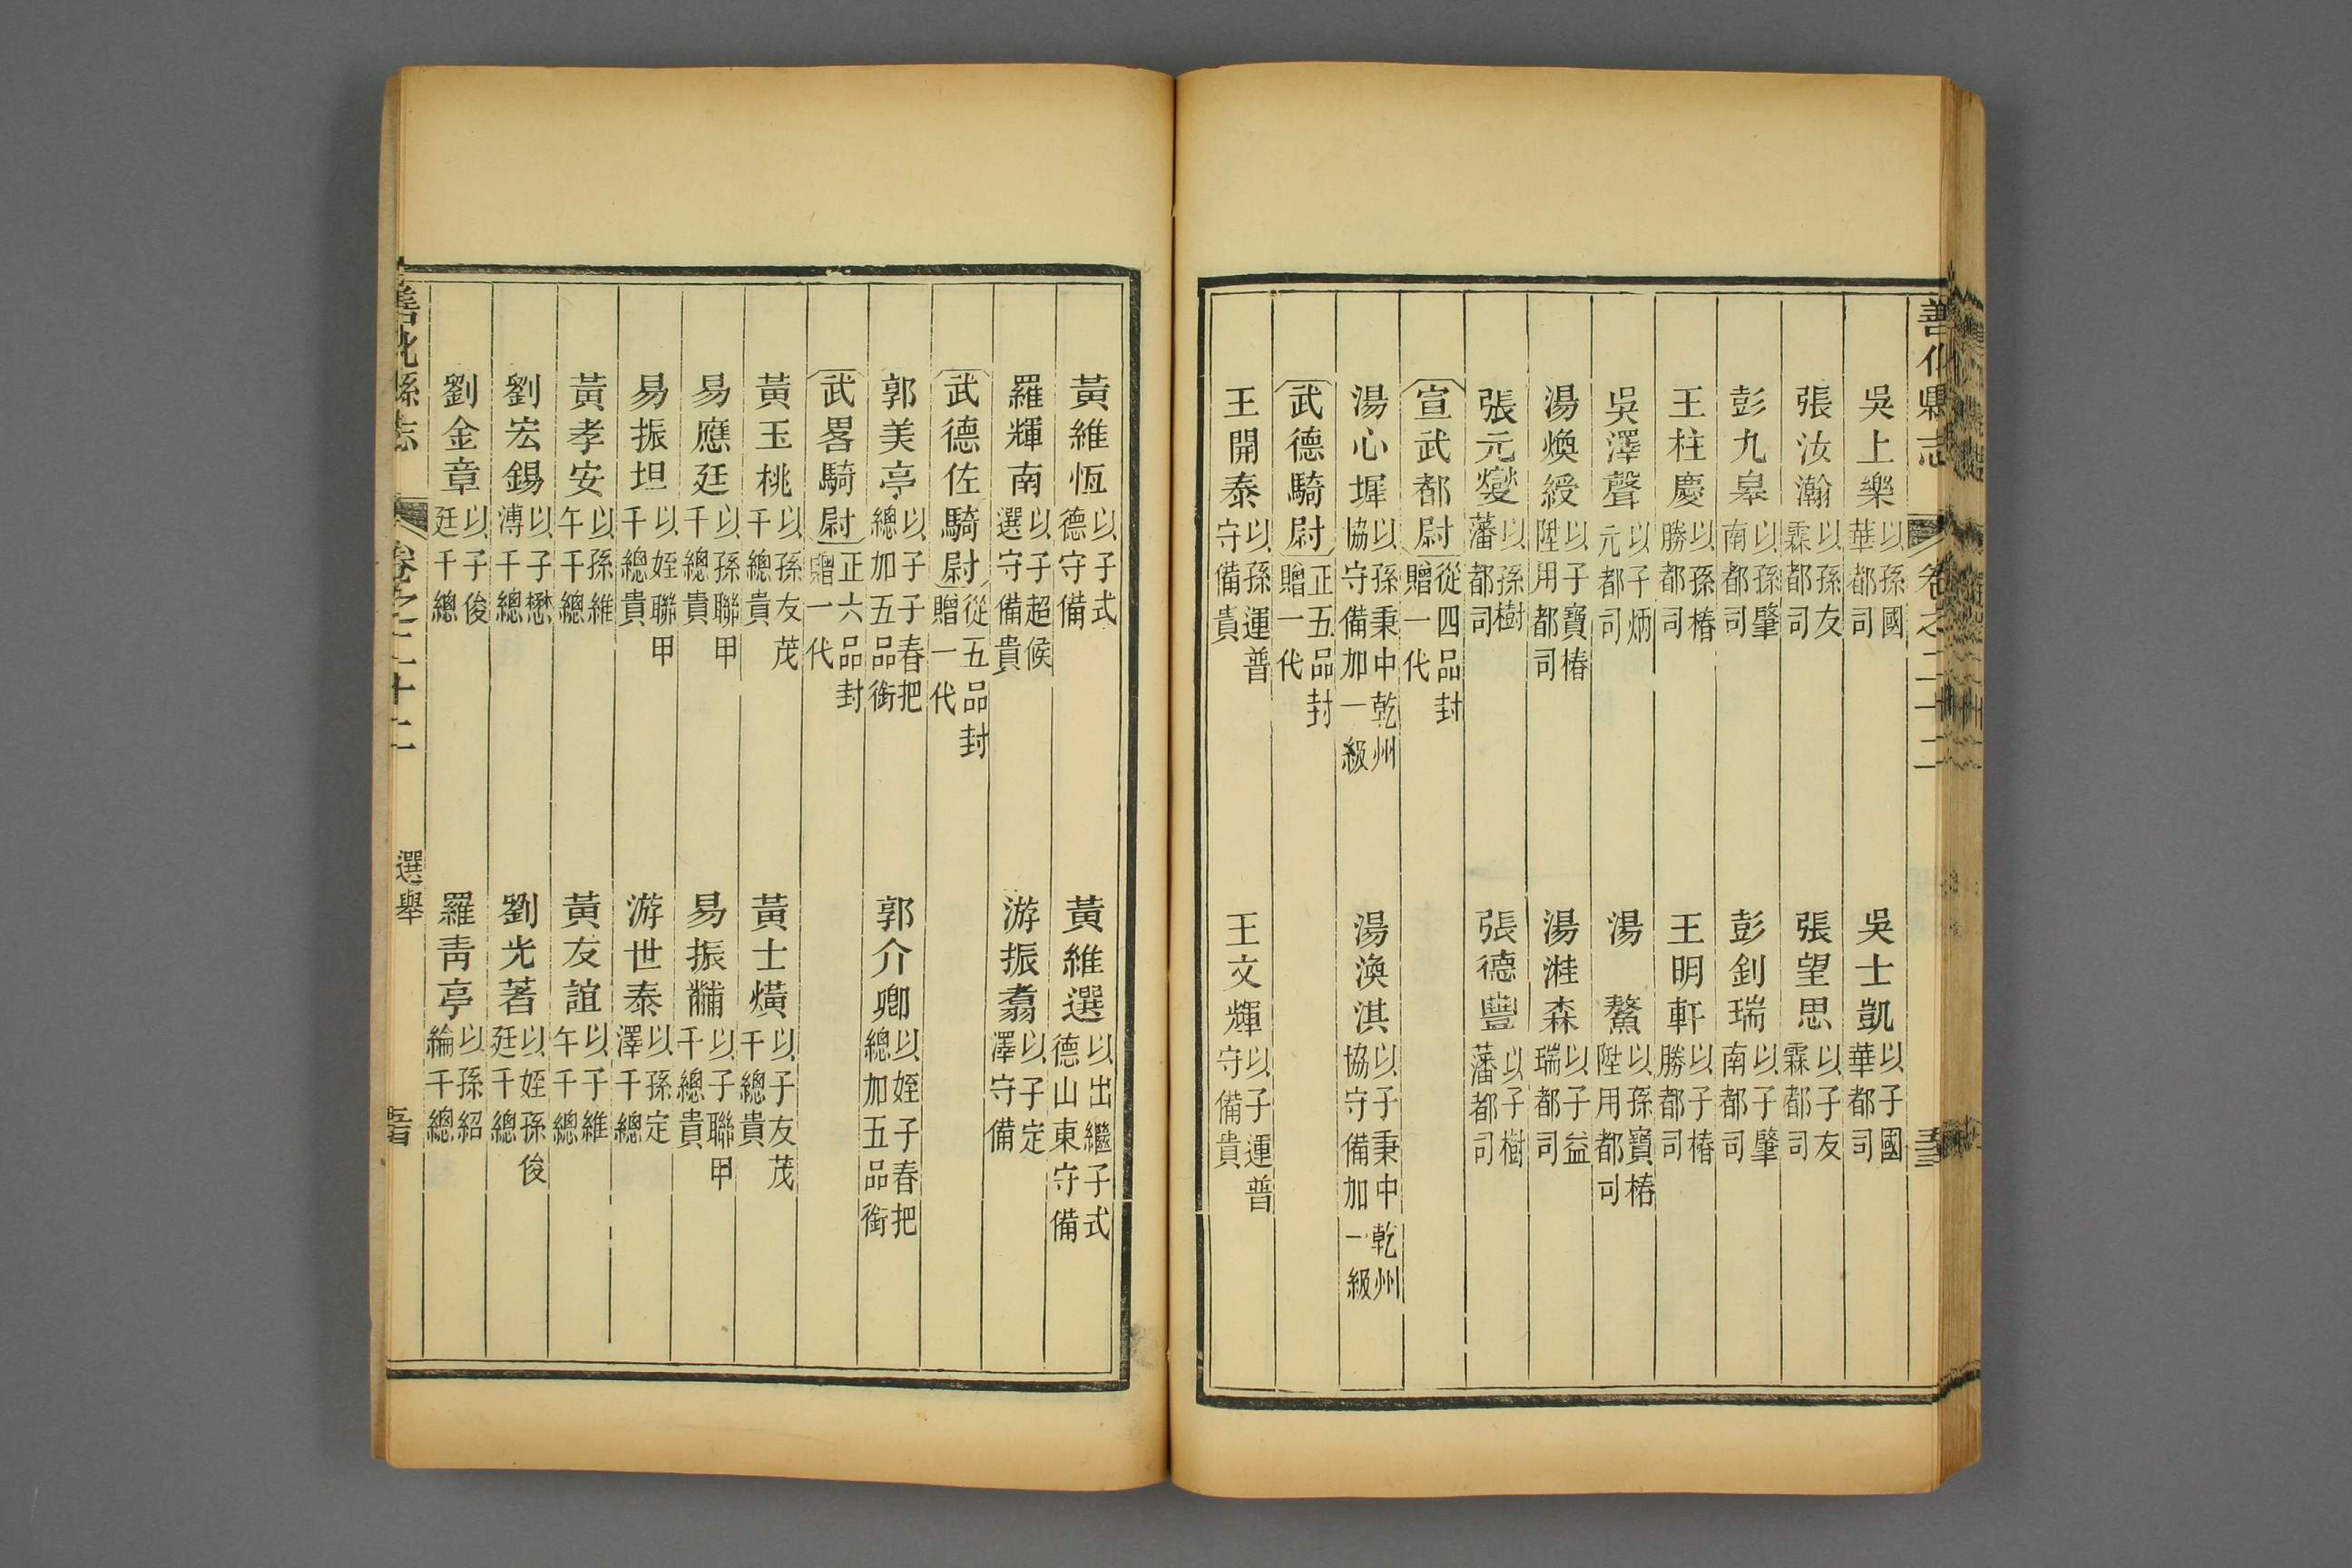 善化縣志 卷之二十二
吳上樂以孫國華都司 吳士凱以子國華都司
張汝瀚以孫友霖都司 張望思以子友霖都司
彭九皋以孫肇南都司 彭釗瑞以子肇南都司
王柱慶以孫椿勝都司 王明軒以子椿勝都司
吳澤聲以子炳元都司 湯鰲以孫寶椿陞用都司
湯煥綬以子寶椿陞用都司 湯溎森以子益瑞都司
張元燮以孫樹藩都司 張德豐以子樹藩都司
宣武都尉從四品封贈一代
湯心墀以孫秉中乾州協守備加一級 湯渙淇以子秉中乾州協守備加一級
武德騎尉正五品封贈一代
王開泰以孫運普守備貴 王文輝以子運普守備貴
黃維恆以子式德守備 黃維選以出繼子式德山東守備
羅輝南以子超候選守備貴 游振翥以子定澤守備
武德佐騎尉從五品封贈一代
郭美亭以子子春把總加五品銜 郭介卿以姪子春把總加五品銜
武畧騎尉正六品封贈一代
黃玉桃以孫友茂千總貴 黃士熿以子友茂千總貴
易應廷以孫聯甲千總貴 易振黼以子聯甲千總貴
易振坦以姪聯甲千總貴 游世泰以孫定澤千總
黃孝安以孫維午千總 黃友誼以子維午千總
劉宏錫以子懋溥千總 劉光著以姪孫俊廷千總
劉金章以子俊廷千總 羅青亭以孫紹綸千總
善化縣志 卷之二十二 選舉